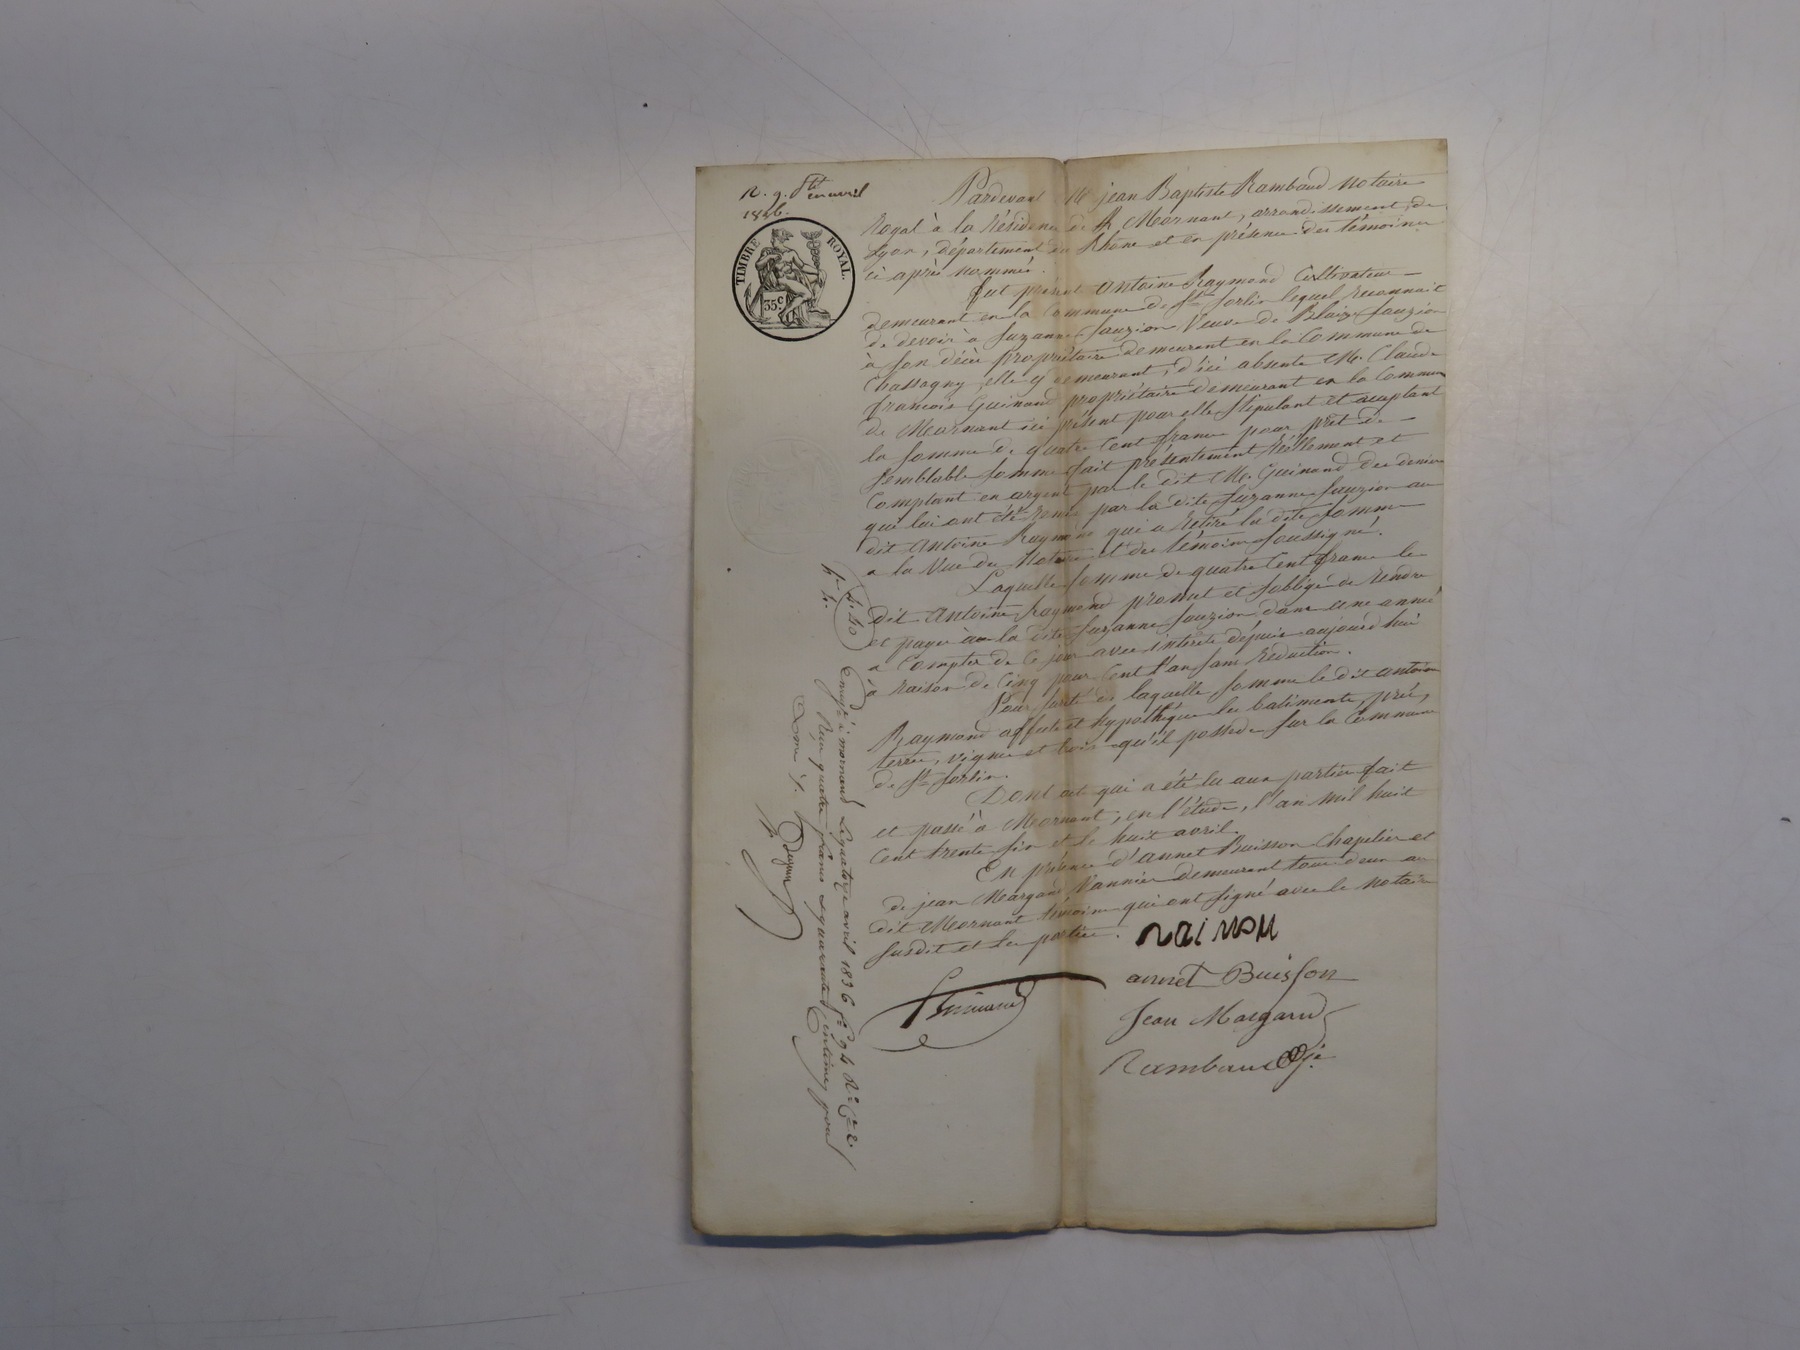 R. g. Sté en avril
1846.
TIMBRE ROYAL.
35c
Pardevant Me jean Baptiste Rambaud notaire
Royal à la Résidence de Mornant, arrondissement de
Lyon, département du Rhône et en présence des témoins
ci après nommés.
fut présent antoine Raymond Cultivateur
demeurant en la Commune de St Sorlin lequel reconnait
de devoir à Suzanne Sauzion Veuve de Blaize Sauzion
à son décès propriétaire demeurant en la Commune de
Chassagny, elle y demeurant, d'ici absente Mr. Claude
françois Guinand propriétaire demeurant en la Commune
de Mornant ici présent pour elle stipulant et acceptant
la somme de quatre Cent francs pour prêt de
semblable somme fait présentement réellement et
Comptant en argent par le dit Mr. Guinand des deniers
qui lui ont été remis par la dite Suzanne Sauzion au
dit antoine Raymond qui a retiré la dite somme
a la Vue du Notaire et des témoins soussignés.
Laquelle somme de quatre Cent francs le
dit antoine Raymond promet et s'oblige de rendre
et payer à la dite Suzanne Sauzion dans une année
a Compter de Ce jour avec intérêts depuis aujourd'hui
à raison de Cinq pour Cent l'an sans réduction.
Pour sureté de laquelle somme le dit antoine
Raymond affecte et hypothéque les batiments, prés,
terres, vignes et bois qu'il possede sur la Commune
de St Sorlin.
Dont acte qui a été lu aux parties fait
et passé à Mornant, en l'étude, l'an mil huit
Cent trente six et le huit avril.
En présence d'annet Buisson Chapelier et
de jean Margand Vannier demeurant tous deux au
dit Mornant témoins qui ont signé avec le notaire
susdit et les parties.
raimon
annet Buisson
Guinand
Jean Margand
Rambaud
4. 40
Enregé à mornand Le quatorze avril 1836 fo 94 Ro Ce 2
Reçu quatre francs et quarante Centimes pour